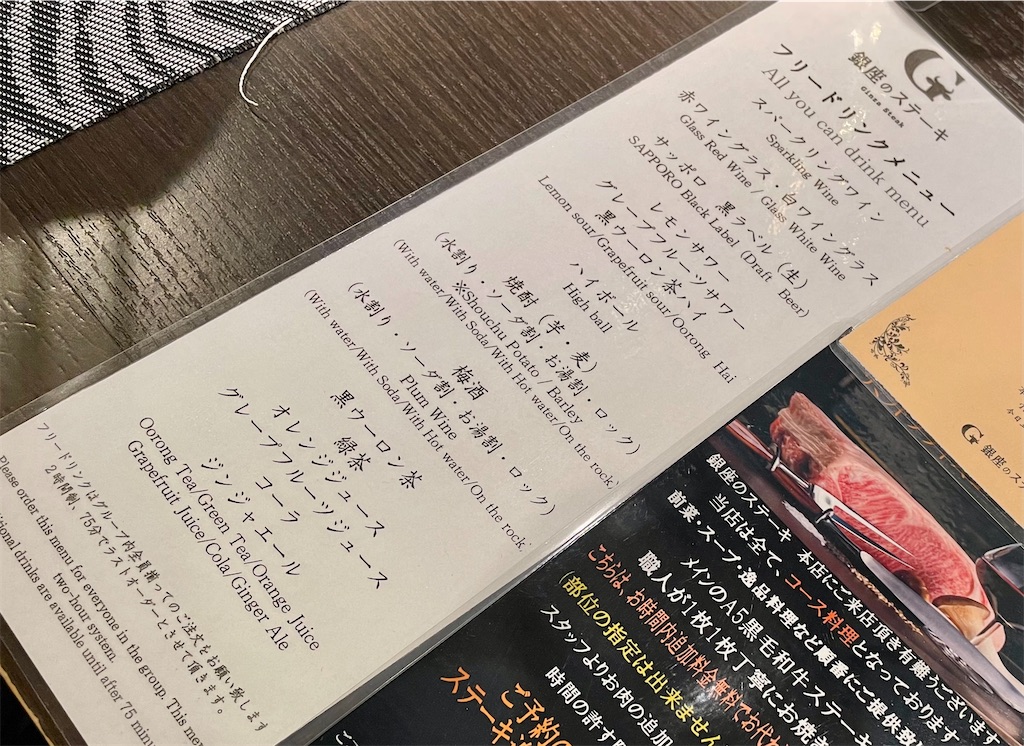 G
Ginza Steak
銀座のステーキ
フリードリンクメニュー
All you can drink menu
スパークリングワイン
Sparkling Wine
赤ワイングラス・白ワイングラス
Glass Red Wine / Glass White Wine
サッポロ 黒ラベル (生)
SAPPORO Black Label (Draft Beer)
レモンサワー
グレープフルーツサワー
黒ウーロン茶ハイ
Lemon sour/Grapefruit sour/Oorong Hai
ハイボール
High ball
焼酎 (芋・麦)
(水割り・ソーダ割・お湯割・ロック)
※Shouchu Potato / Barley
(With water/With Soda/With Hot water/On the rock)
梅酒
(水割り・ソーダ割・お湯割・ロック)
Plum Wine
(With water/With Soda/With Hot water/On the rock)
黒ウーロン茶
緑茶
オレンジジュース
グレープフルーツジュース
コーラ
ジンジャエール
Oorong Tea/Green Tea/Orange Juice
Grapefruit Juice/Cola/Ginger Ale
フリードリンクはグループ内全員揃ってのご注文をお願い致します
2時間制、75分でラストオーダーとさせて頂きます。
Please order this menu for everyone in the group. This me
two-hour system.
tional drinks are available until after 75 minu
G 銀座のス
銀座のステーキ 本店にご来店頂き有難うございます
当店は全て、コース料理となっております
前菜・スープ・逸品料理など順番にご提供致
メインのA5黒毛和牛ステーキ
職人が1枚1枚丁寧にお焼き
こちらは、お時間内追加料金無料でお代わ
(部位の指定は出来ません
スタッフよりお肉の追加
時間の許す限
ご予約の
ステーキ